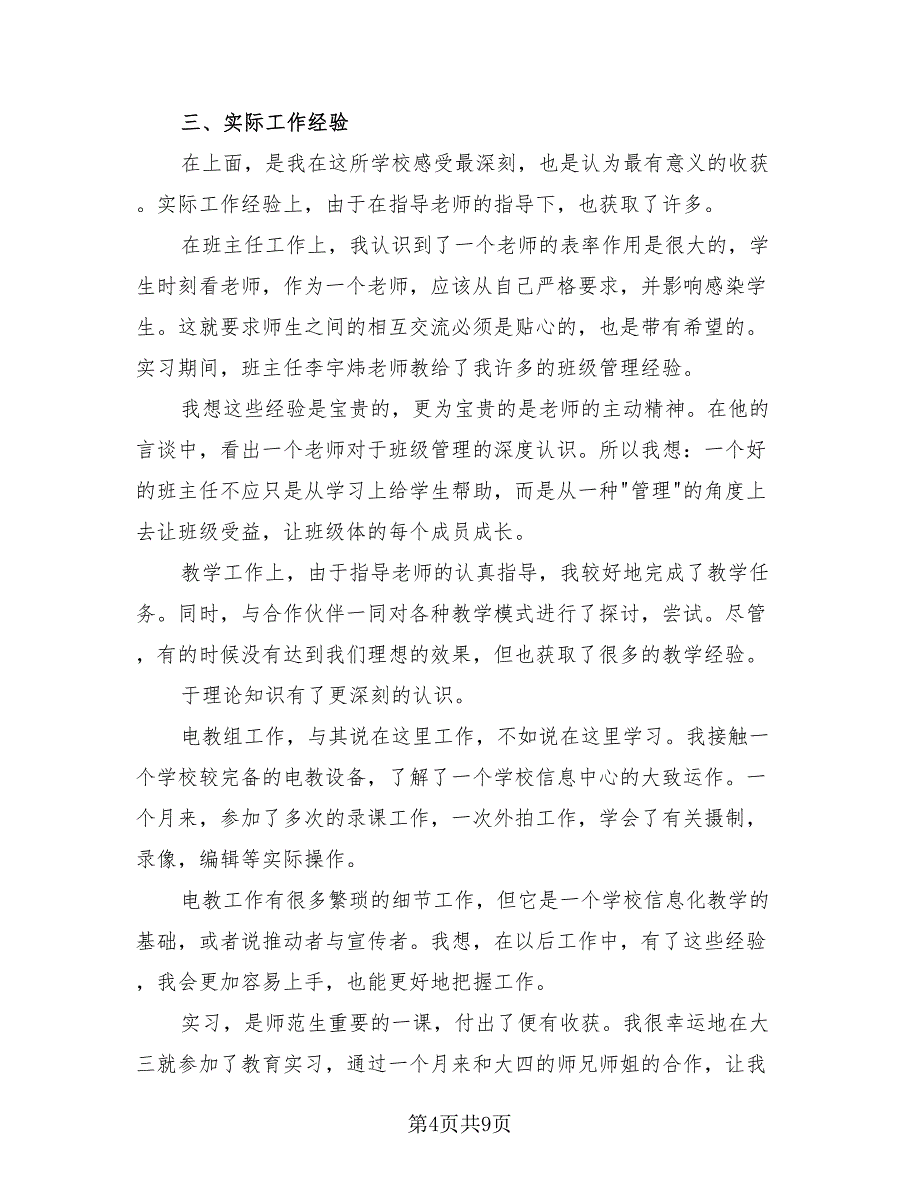 三、实际工作经验
在上面，是我在这所学校感受最深刻，也是认为最有意义的收获
。实际工作经验上，由于在指导老师的指导下，也获取了许多。
在班主任工作上，我认识到了一个老师的表率作用是很大的，学
生时刻看老师，作为一个老师，应该从自己严格要求，并影响感染学
生。这就要求师生之间的相互交流必须是贴心的，也是带有希望的。
实习期间，班主任李宇炜老师教给了我许多的班级管理经验。
我想这些经验是宝贵的，更为宝贵的是老师的主动精神。在他的
言谈中，看出一个老师对于班级管理的深度认识。所以我想：一个好
的班主任不应只是从学习上给学生帮助，而是从一种"管理"的角度上
去让班级受益，让班级体的每个成员成长。
教学工作上，由于指导老师的认真指导，我较好地完成了教学任
务。同时，与合作伙伴一同对各种教学模式进行了探讨，尝试。尽管
，有的时候没有达到我们理想的效果，但也获取了很多的教学经验。
于理论知识有了更深刻的认识。
电教组工作，与其说在这里工作，不如说在这里学习。我接触一
个学校较完备的电教设备，了解了一个学校信息中心的大致运作。一
个月来，参加了多次的录课工作，一次外拍工作，学会了有关摄制，
录像，编辑等实际操作。
电教工作有很多繁琐的细节工作，但它是一个学校信息化教学的
基础，或者说推动者与宣传者。我想，在以后工作中，有了这些经验
，我会更加容易上手，也能更好地把握工作。
实习，是师范生重要的一课，付出了便有收获。我很幸运地在大
三就参加了教育实习，通过一个月来和大四的师兄师姐的合作，让我
第4页共9页